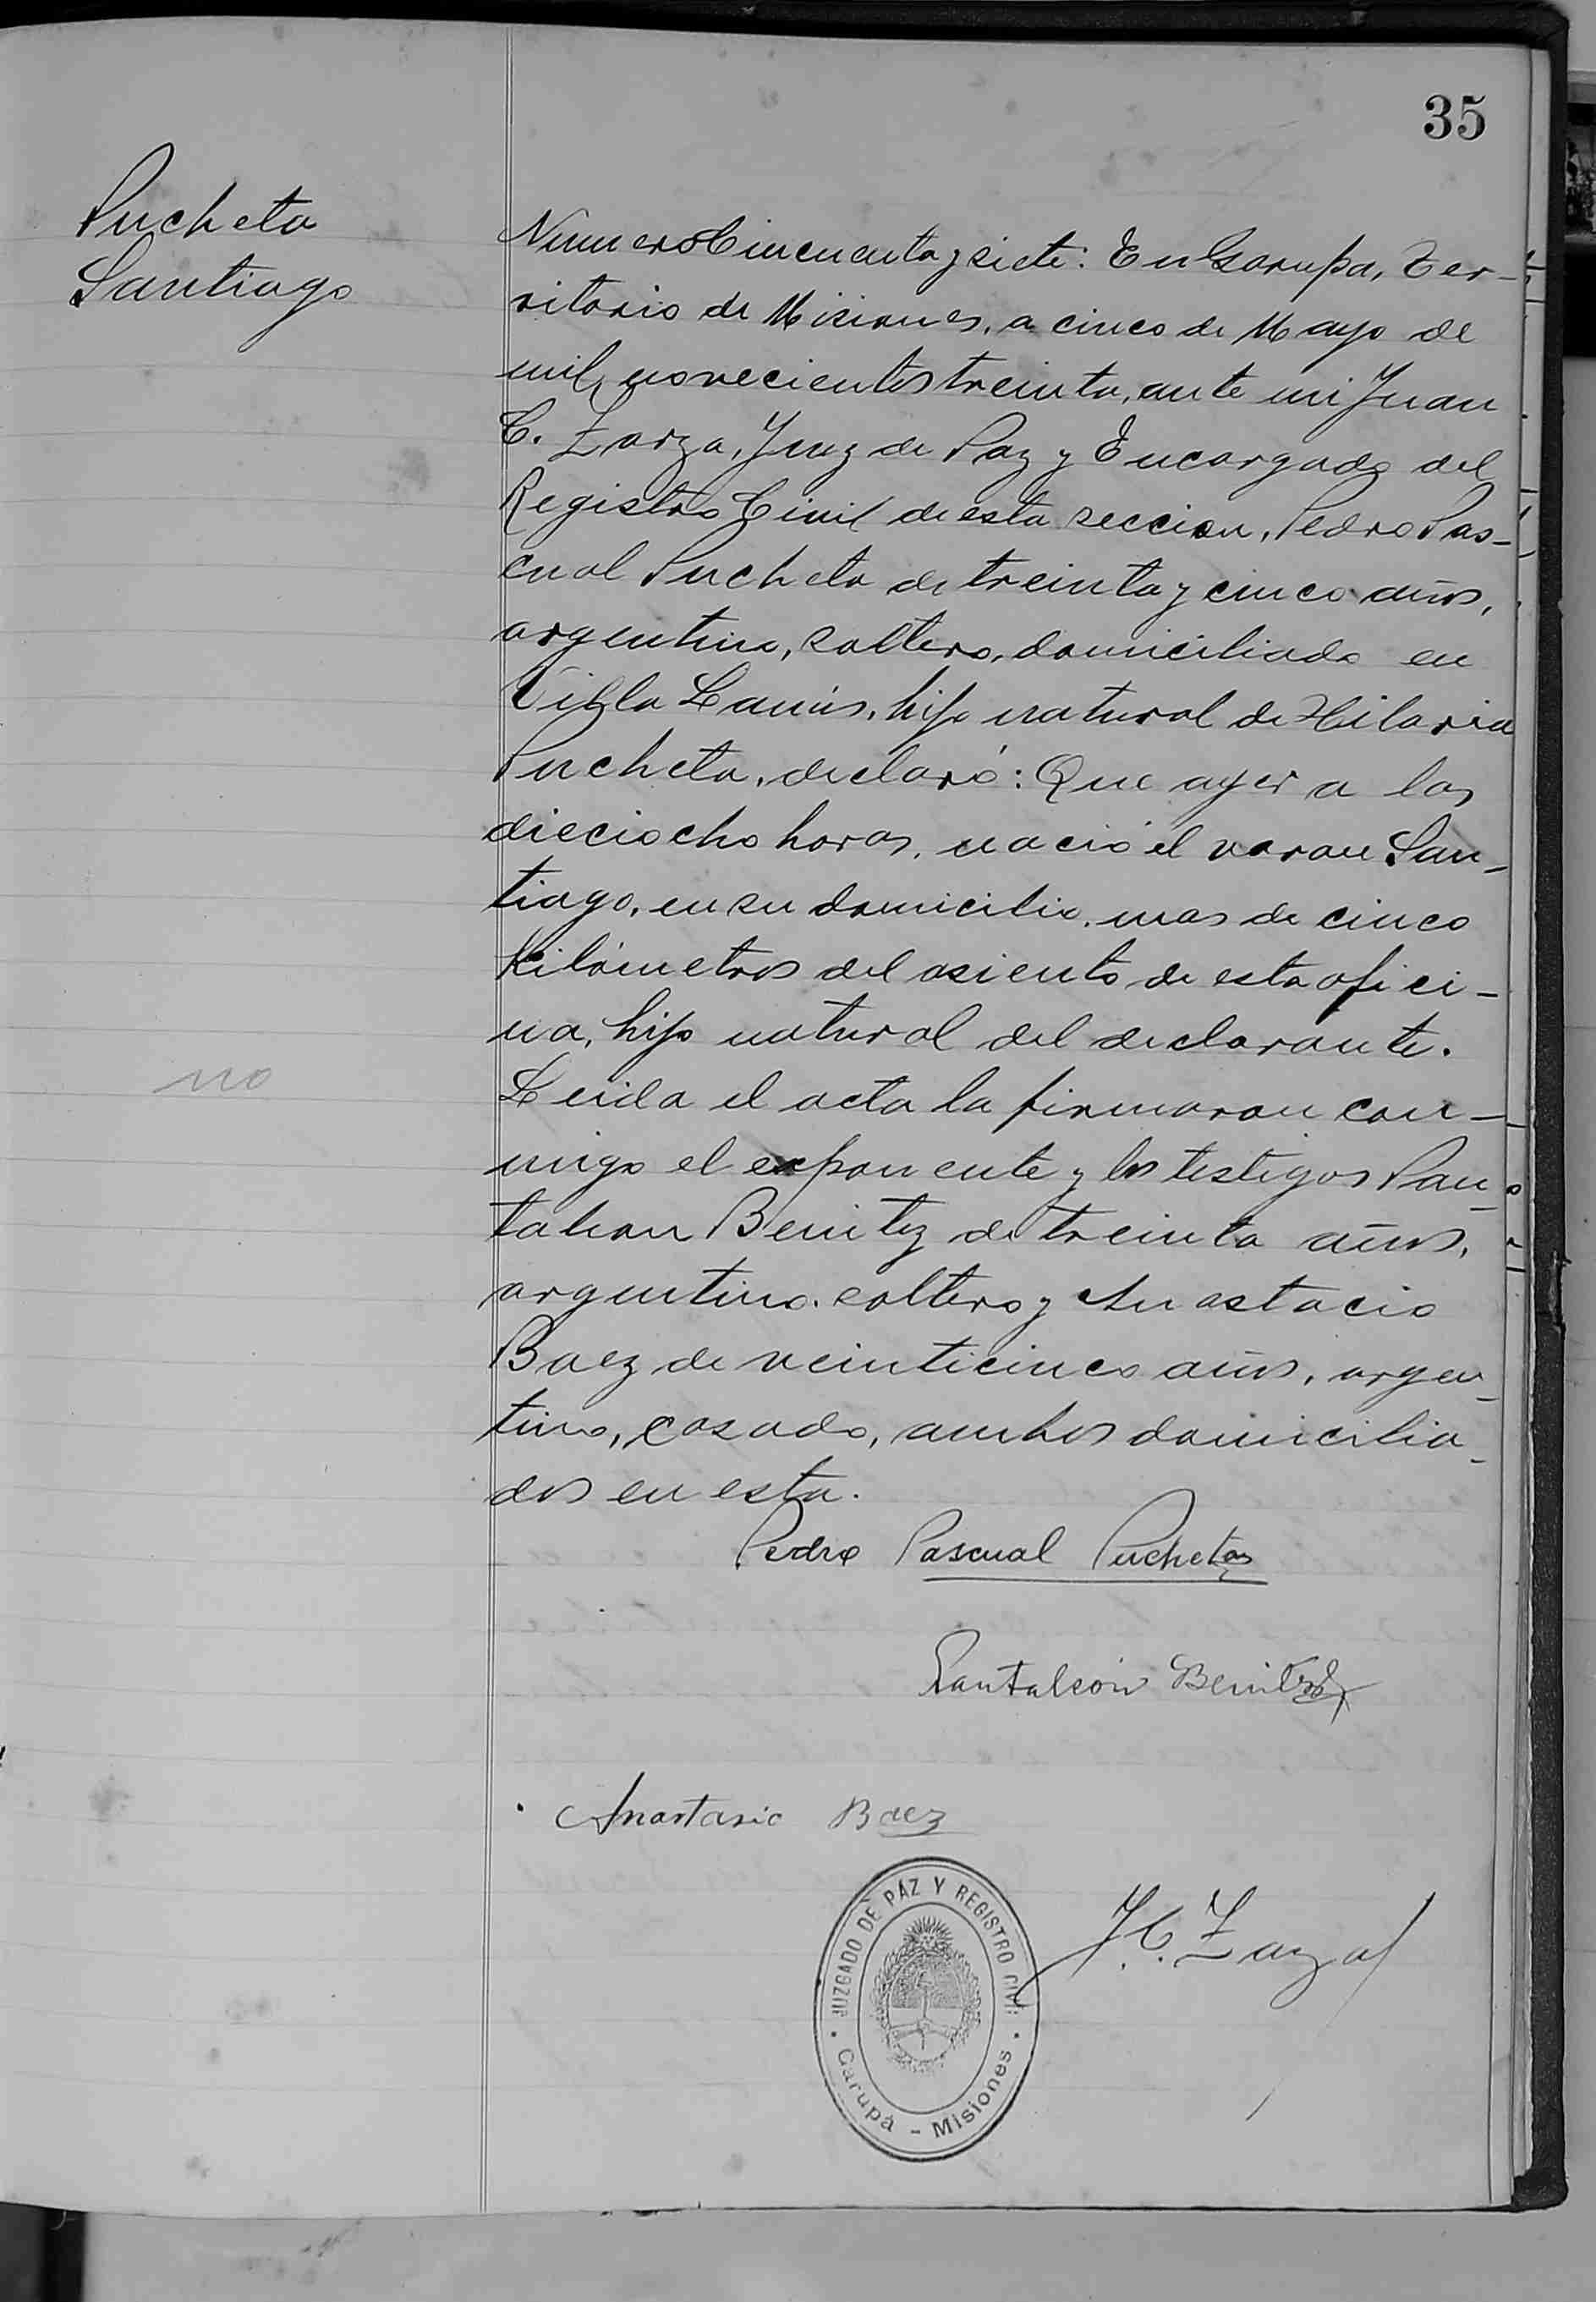 35
Pucheta
Santiago
Numero Cincuenta y siete: En Garupa, Ter-
ritorio de Misiones, a cinco de Mayo de
mil novecientos treinta, ante mi Juan
C. Zarza, Juez de Paz y Encargado del
Registro Civil de esta seccion, Pedro Pas-
cual Pucheta de treinta y cinco años,
argentino, soltero, domiciliado en
Villa Lanús, hijo natural de Hilaria
Pucheta, declaró: Que ayer a las
dieciocho horas, nació el varon San-
tiago, en su domicilio, mas de cinco
Kilómetros del asiento de esta ofici-
na, hijo natural del declarante.
no
Leida el acta la firmaron con-
migo el exponente y los testigos Pan-
taleon Benitez de treinta años,
argentino, soltero y Anastacio
Baez de veinticinco años, argen-
tino, casado, ambos domicilia-
dos en esta.
Pedro Pascual Pucheta
Pantaleón Benitez
Anastasio Baez
J. C. Zarza
JUZGADO DE PAZ Y REGISTRO CIVIL
Garupá - Misiones